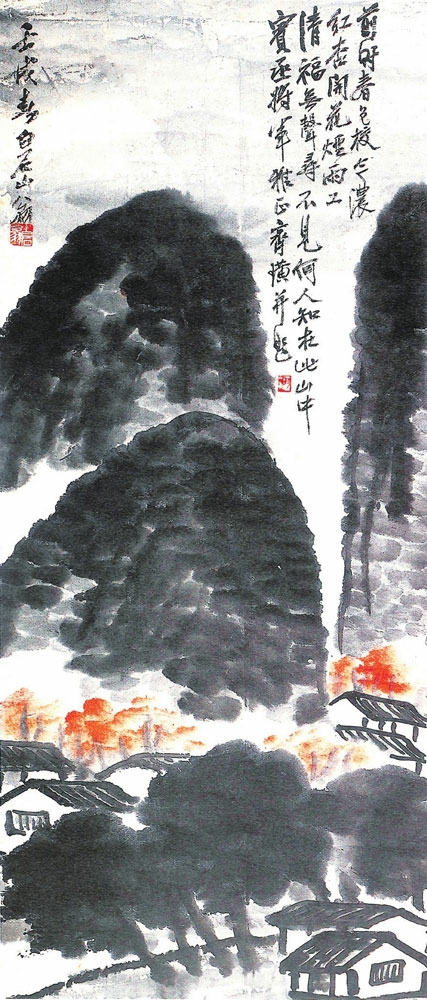 春色較濃
紅杏開花煙雨工
清福無聲尋不見何人知在此山中
丞將軍雅正齊璜并題
壬戌春白石山翁